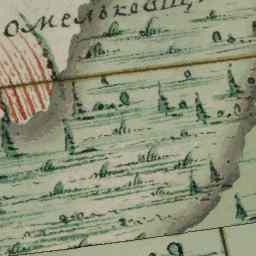 Омельковщи